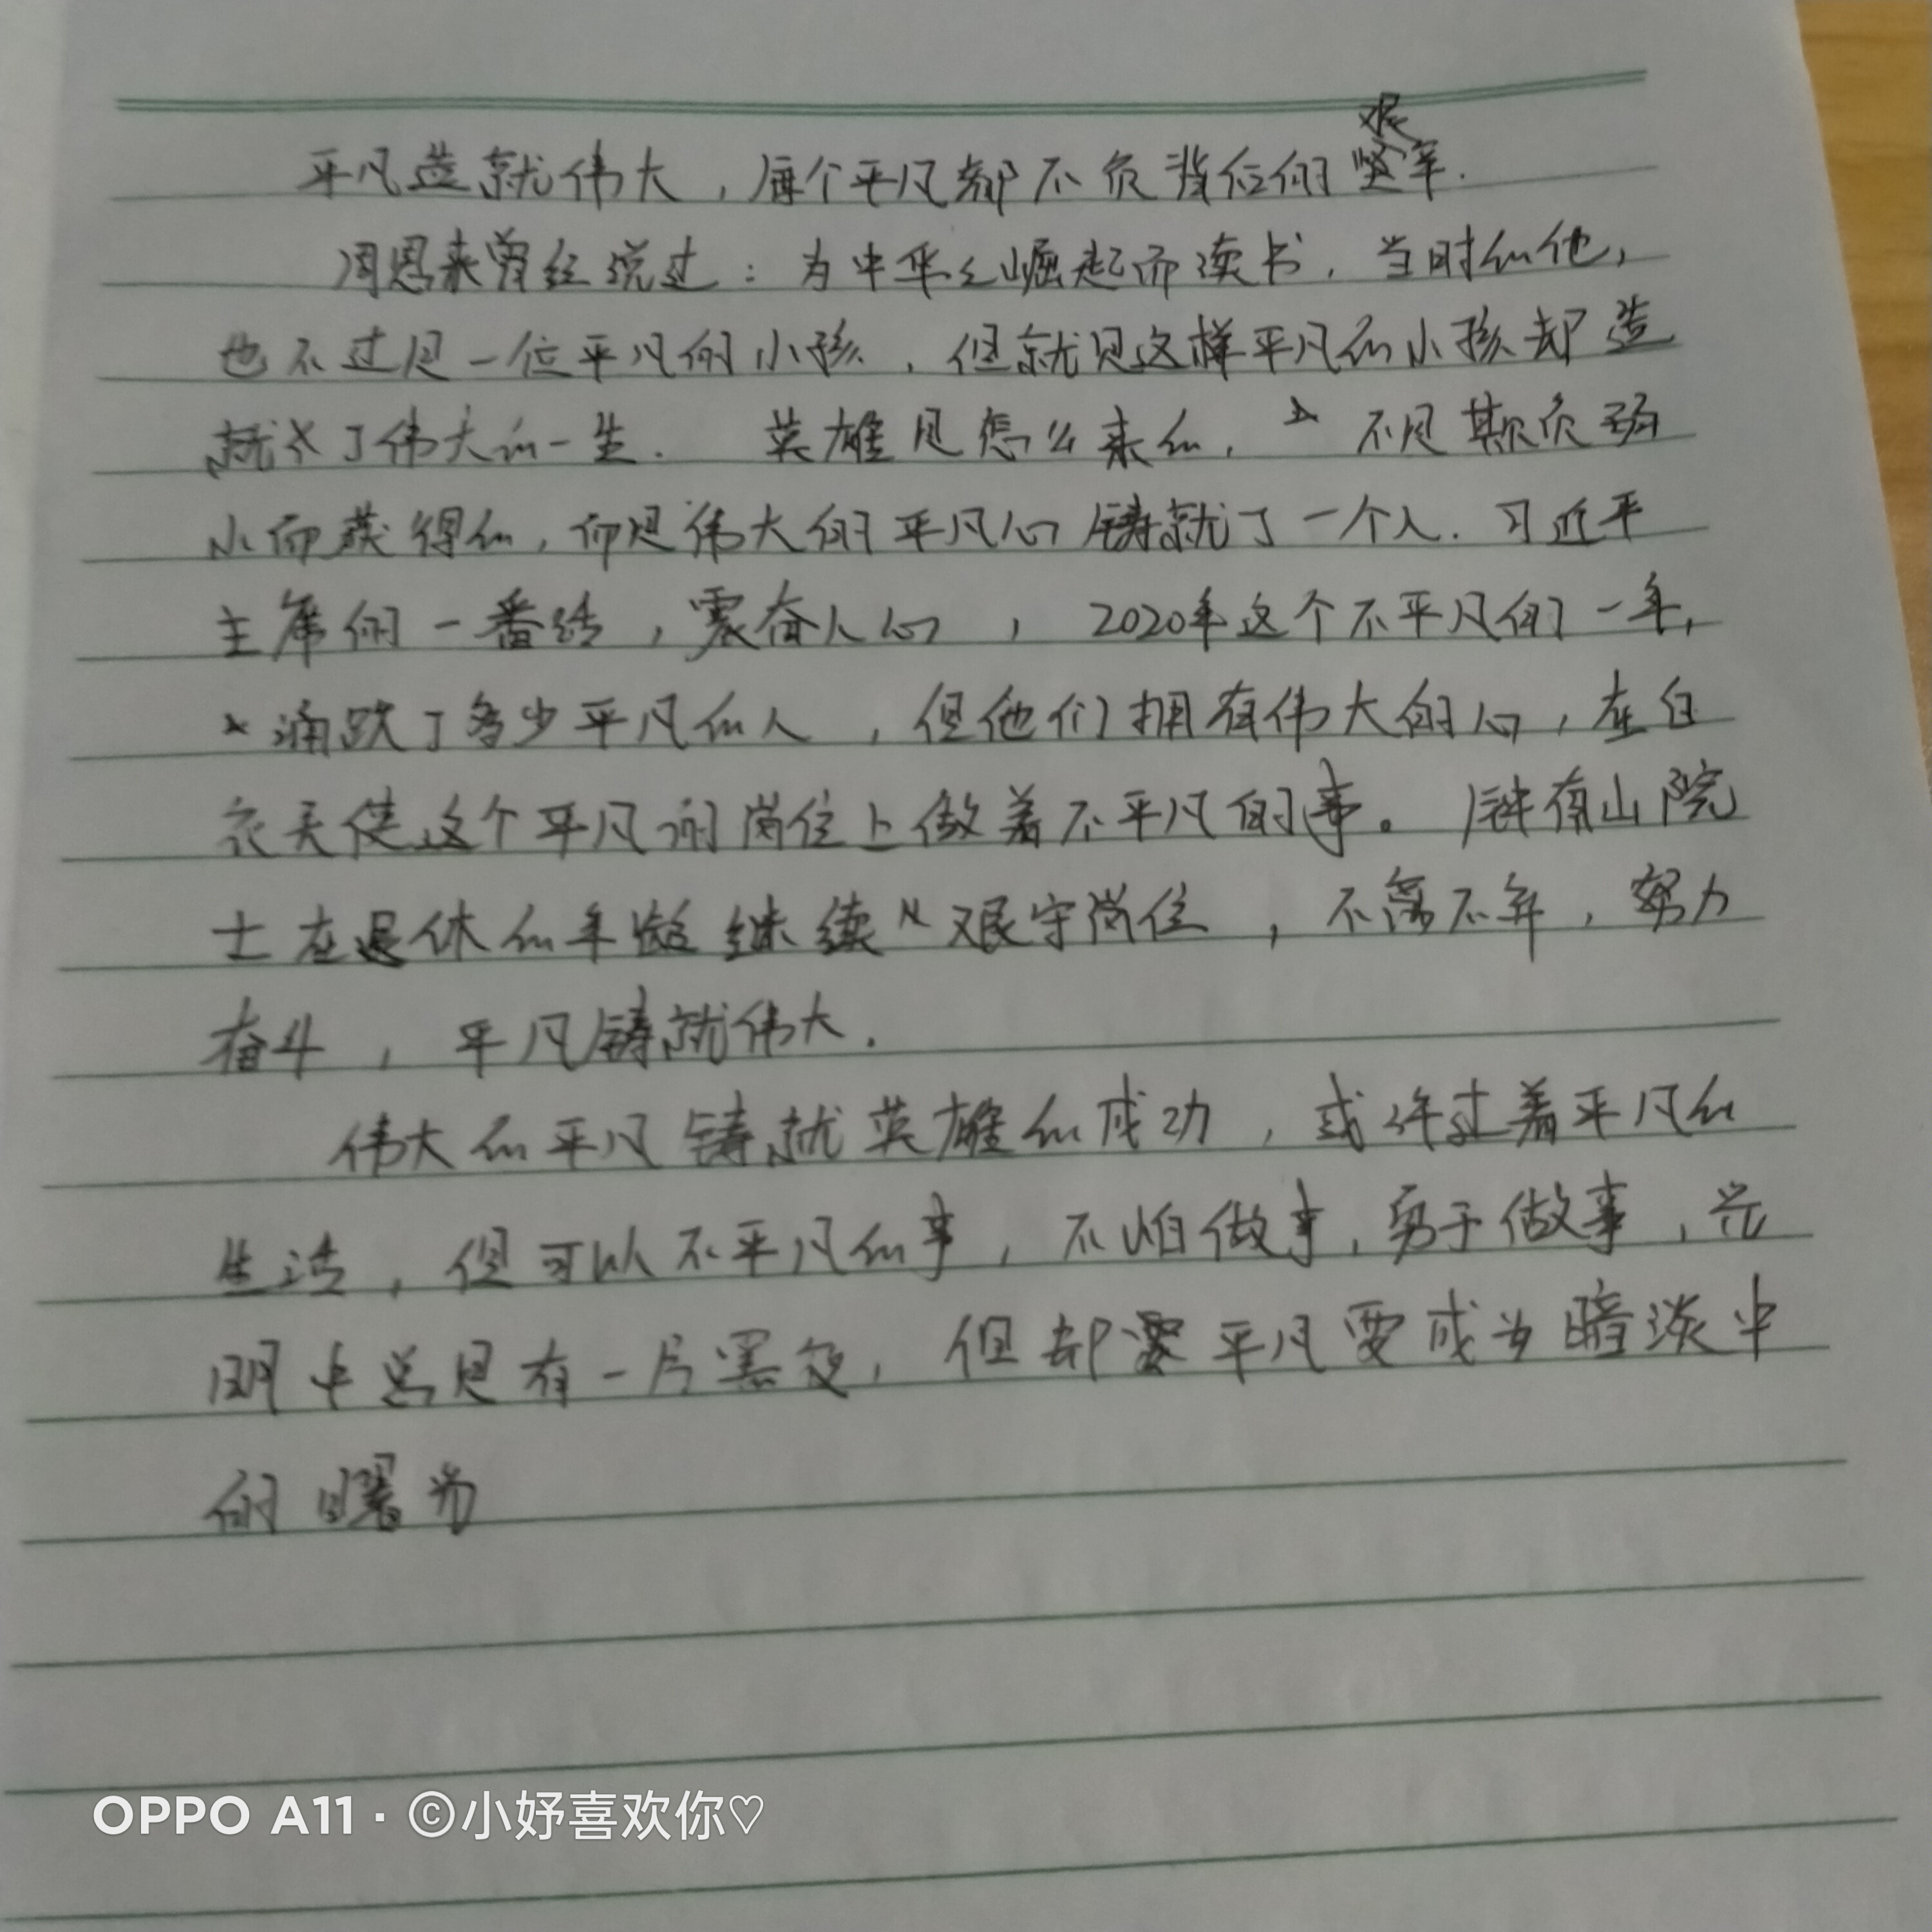 平凡造就伟大，每个平凡都不负背后的艰辛.
周恩来曾经说过：为中华之崛起而读书，当时的他，
也不过是一位平凡的小孩，但就是这样平凡的小孩却造
就了伟大的一生. 英雄是怎么来的，不是欺负弱
小而获得的，而是伟大的平凡心铸就了一个人. 习近平
主席的一番话，震奋人心，2020年这个不平凡的一年，
涌跃了多少平凡的人，但他们拥有伟大的心，在白
衣天使这个平凡的岗位上做着不平凡的事。钟南山院
士在退休的年龄继续艰守岗位，不离不弃，努力
奋斗，平凡铸就伟大.
伟大的平凡铸就英雄的成功，或许过着平凡的
生活，但可以不平凡的事，不怕做事，勇于做事，光
明中总是有一片黑夜，但却平凡要成为暗淡中
的曙光
OPPO A11 · ©小妤喜欢你♡